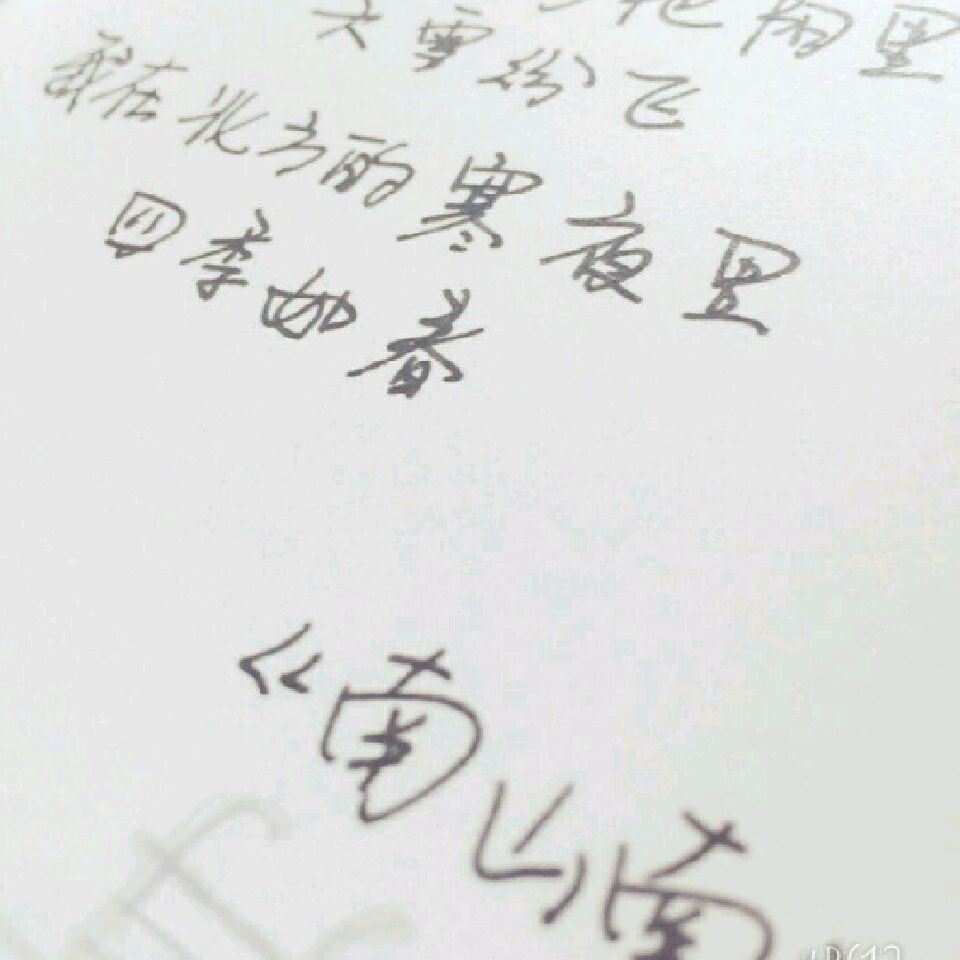 艳阳里
大雪纷飞
我在北方的寒夜里
四季如春
《南山南